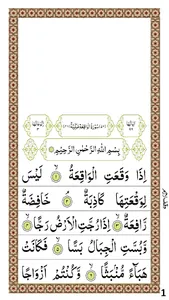 بِسْمِ اللّٰهِ الرَّحْمٰنِ الرَّحِيْمِ
اِذَا وَقَعَتِ الْوَاقِعَةُ ۙ﴿۱﴾ لَيْسَ
لِوَقْعَتِهَا كَاذِبَةٌ ۘ﴿۲﴾ خَافِضَةٌ
رَّافِعَةٌ ۙ﴿۳﴾ اِذَا رُجَّتِ الْاَرْضُ رَجًّا ۙ﴿۴﴾
وَّبُسَّتِ الْجِبَالُ بَسًّا ۙ﴿۵﴾ فَكَانَتْ
هَبَآءً مُّنْۢبَثًّا ۙ﴿۶﴾ وَّكُنْتُمْ اَزْوَاجًا
1